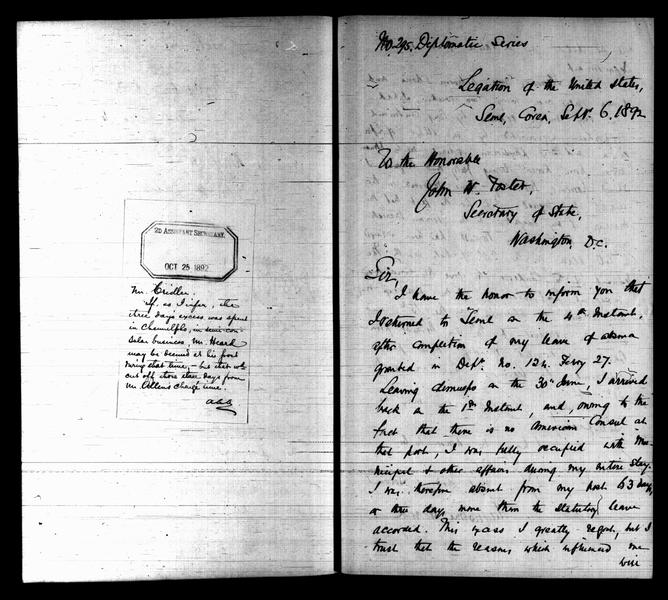 2D ASSISTANT SECRETARY.
OCT 25 1892
Mr. Cridler.
If, as I infer, the
three days excess was spent
in Chemulpo, in semi-con-
sular business, Mr. Heard
may be deemed at his post
during that time, - but that wd
cut off those three days from
Mr. Allen's chargé time.
AAA
No. 295. Diplomatic Series
Legation of the United States,
Seoul, Corea, Sept. 6, 1892
To the Honorable
John W. Foster,
Secretary of State,
Washington D.C.
Sir,
I have the honor to inform you that
I returned to Seoul on the 4th Instant,
after completion of my leave of absence
granted in Dept. No. 124. Feby 27.
Leaving Chemulpo on the 30th June, I arrived
back on the 1st Instant, and, owing to the
fact that there is no American Consul at
that port, I was fully occupied with Mu-
nicipal & other affairs during my entire stay.
I was therefore absent from my post 63 days,
or three days more than the statutory leave
accorded. This excess I greatly regret, but I
trust that the reasons which influenced me
will